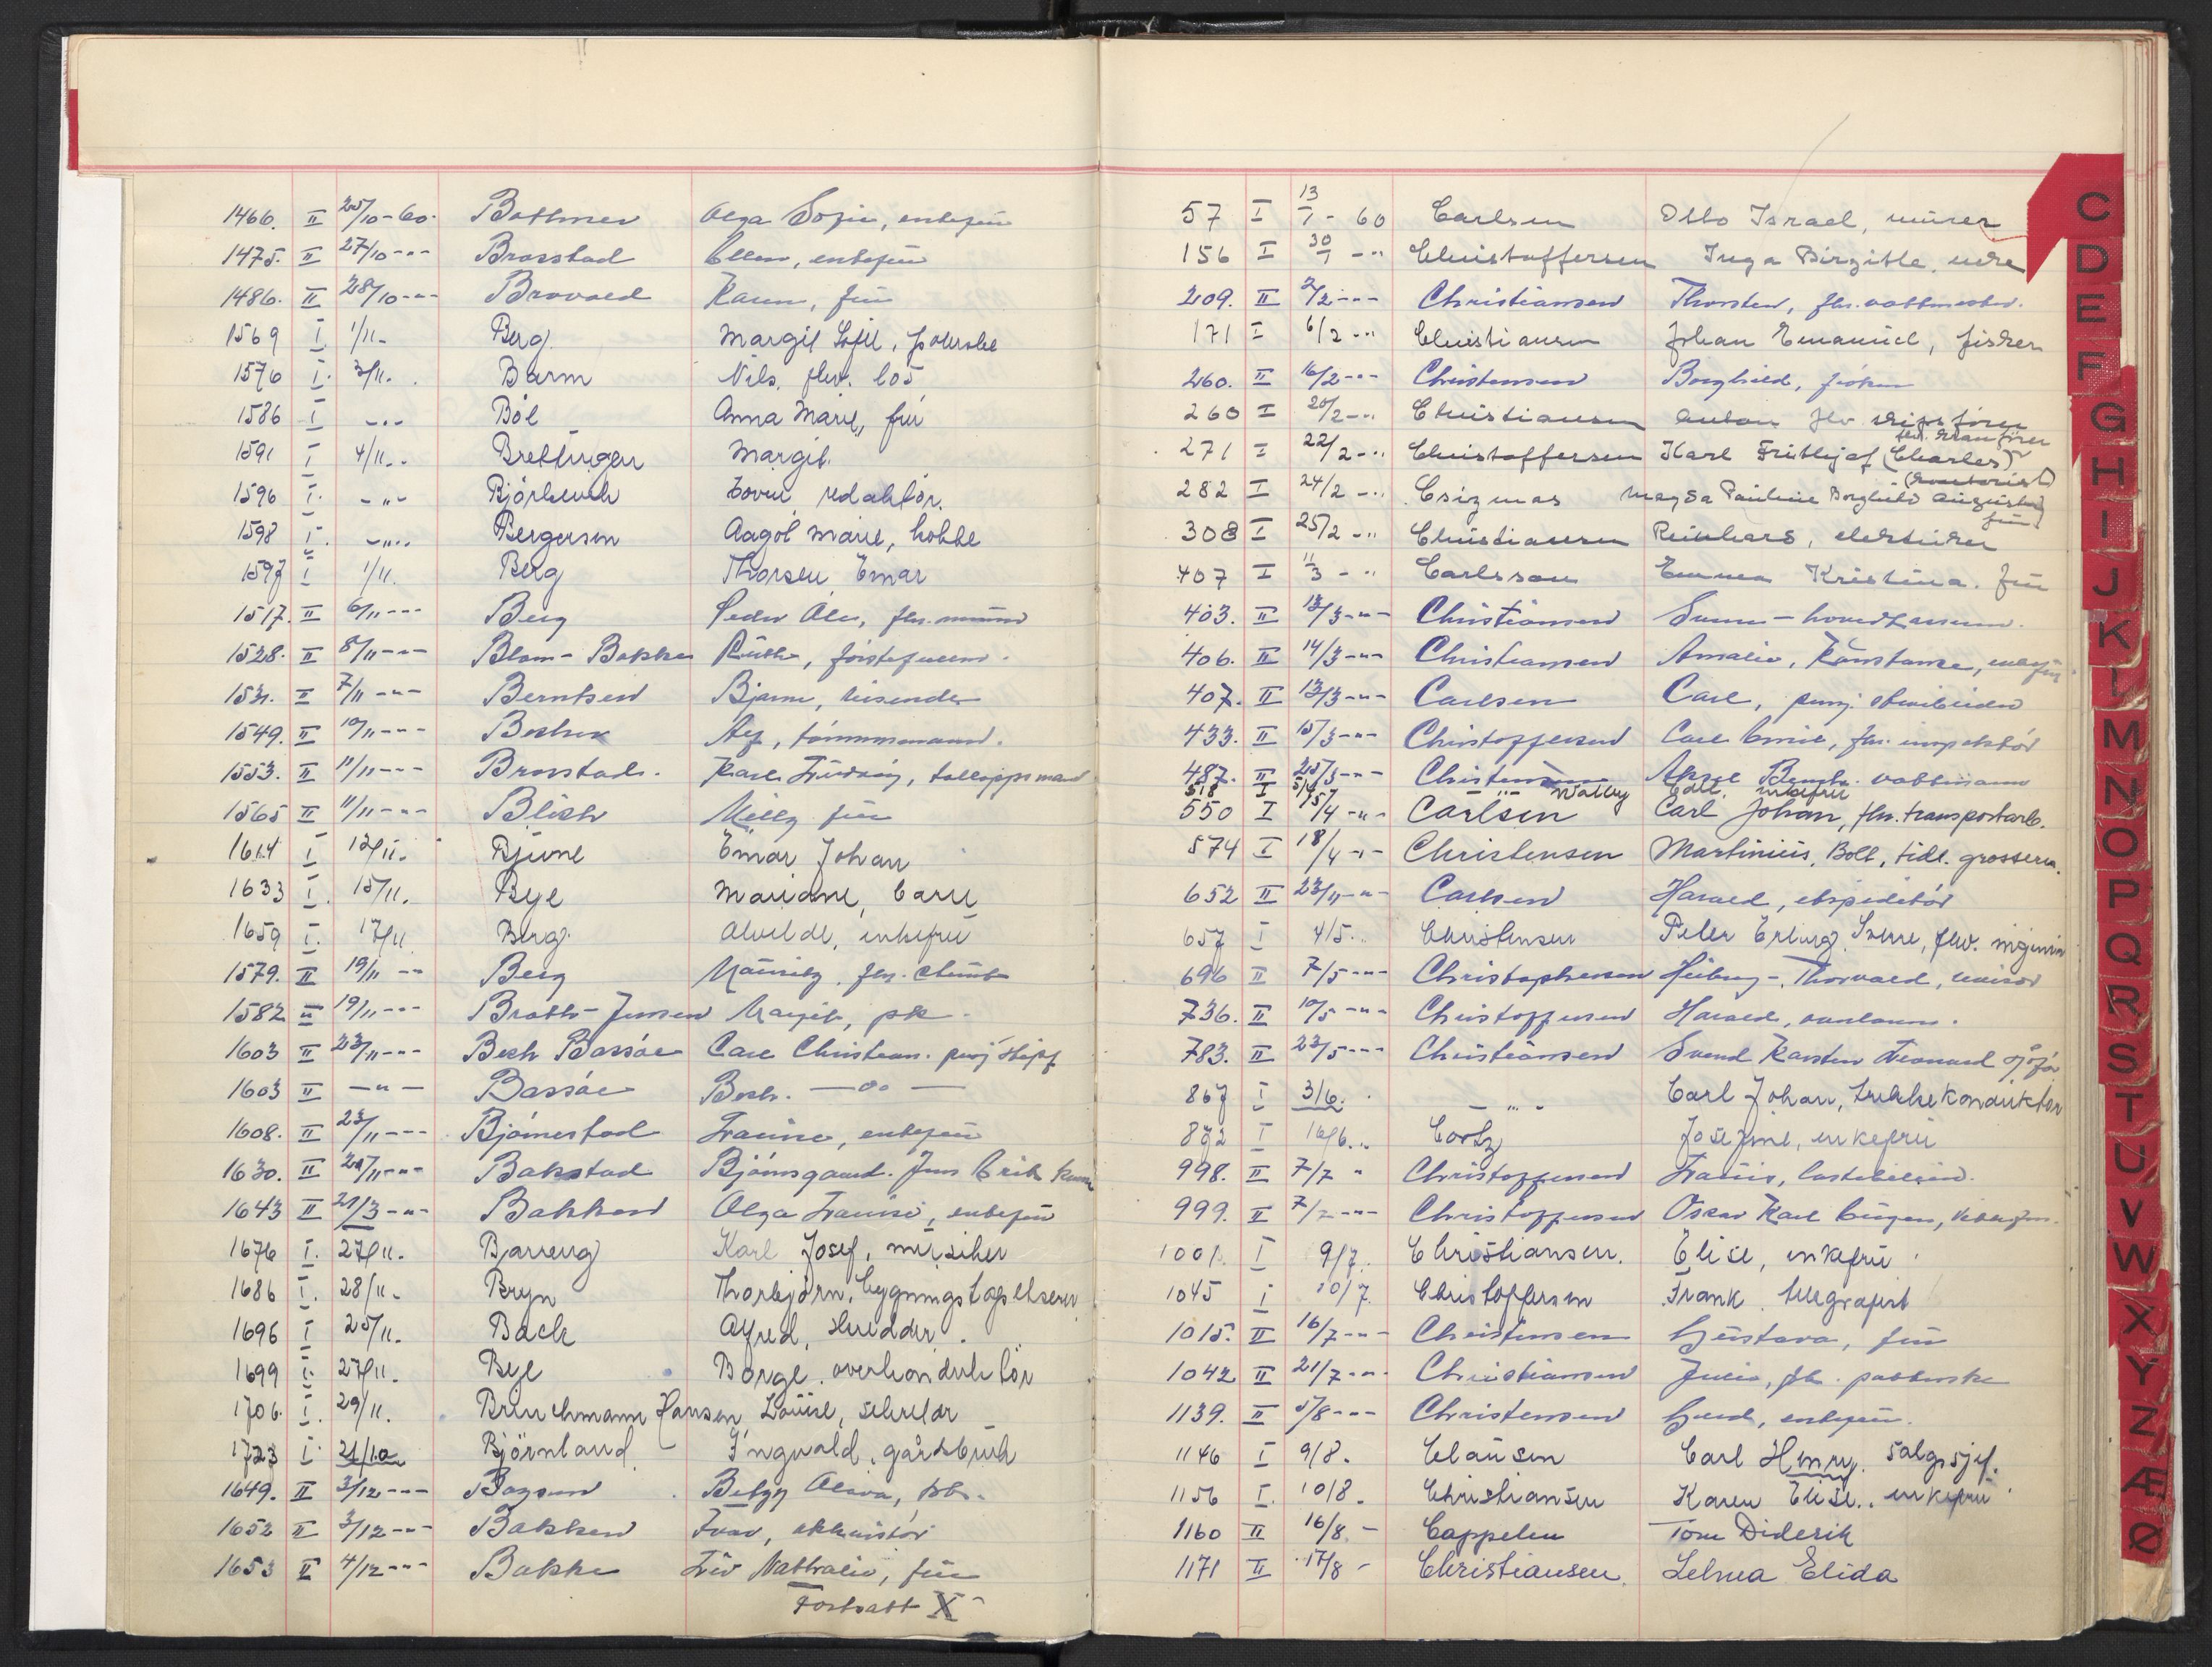 1466. II 25/10-60. Bothner Olga Sofie, enkefrü
1475. II 27/10 -"- Brosstad Ellen, enkefrü
1486. II 28/10 -"- Brovold Karen, frü
1569 I 1/11- Berg Margit Sofie,
1576 I. 3/11. Barm Nils, flw. los
1586 I -"- Böe Anna Marie, frü
1591 I 4/11 -" Brettingen Margit.
1596 I. -"- Björkevik redaktör.
1598 I. -"- Bergersen Aagot Marie, kokke
1597 I 1/11. Berg Thorsen, Einar
1517. II 6/11 -"- Berg Peder
1528. II 8/11 -"- Blom-Bakke Rüth,
1531. II 7/11 -"- Berntsen Bjarne, reisende
1549. II 10/11 -"- Alf, tömmermann.
1553. II 11/11 -"- Brostad. Karl Lüdvig, tolloppsmand
1565 II 11/11 -"- Blich Milly frü
1614 I 12/11. Bjune Einar Johan
1633 I. 15/11. Bye Mariane,
1659 I. 17/11 Berg Alvilde, enkefrü
1579. II 19/11 -"- Berg
1582 II 19/11 -"- Margit, pk.
1603 II 23/11 -"- Bech Bassöe Carl Christian.
1603 II -"- Bassöe Bech. -"-
1608. II 23/11 -"- Björnestad enkefrü
1630. II 24/11 -"- Bakstad Björnsgaard. Jens Erik
1643 II 21/3 -"- Bakken Olga Lovise, enkefrü
1676 I. 27/11. Bjarreng Karl Josef, müsiker
1686 I. 28/11. Bryn Thorbjørn,
1696 I 25/11. Back Alfred, skredder.
1699 I. 27/11. Bye Borge. overkonduktör
1706. I. 29/11. Brinchmann Hansen Loüise, sekretær
1723 I. 21/10 Björnland Ingvald, gårdbrük
1649. II 3/12 -"- Betzy
1652 II 3/12 -"- Bakken Ivar,
1653 II 4/12 -"- Bakke Liv Nathalie, frü
Fortsatt X
57 I 13/1 - 60 Carlsen Otto Israel, mürer
156 I 30/1 -" Christoffersen Inga Birgitte,
209. II 2/2 -"- Christiansen Thorsten, fhv. vaktmester.
171 I 6/2 -" Christiansen Johan Emanüel, fisker
260. II 16/2 -"- Christensen Borghild, fröken
260 I 20/2 -" Christiansen Anton flv
271 I 22/2 -" Christoffersen Karl Frithjof (Charles)
282 I 24/2 -" Csizmas Magda Pauline Borghild Augusta
frü
308 I 25/2 -" Christiansen Reinhard, elektriker
407 I 11/3 -" Carlsson Emma Kristina. frü
403. II 12/3 -"- Christiansen
406. II 14/3 -"- Christiansen Amalie, Konstanse, enkefrü
407. II 12/3 -"- Carlsen Carl,
433. II 15/3 -"- Christoffersen Carl Emil, fhv. inspektör
487. II 25/3 -"- Christensen Aksel vaktmann
518 I -"- Walby enkefrü
550 I 5/4 -"- Carlsen Carl Johan, fhv. transportarb.
574 I 18/4 -"- Christensen Martinius, Bolt, tidl. grosserer.
652 II 23/4 -"- Carlsen Harald, ekspeditör
657 I 4/5. Christensen Peter Erling Sverre, flw. ingeniør
696 II 7/5 -"- Christophersen Heiberg-, Thorvald, revisor
736. II 10/5 -"- Christoffersen Harald,
783. II 23/5 -"- Christiansen Svend Karsten Leonard
867 I 3/6. -"- Carl Johan, trikkekonduktør
872 I 16/6 .. Cortz Josefine, enkefrü
998. II 7/7 " Christoffersen
999. II 7/7 -"- Christoffersen Oskar Karl Eugen,
1001. I 9/7. Christiansen. Elise, enkefrü
1045 I 10/7. Christoffersen Frank telegrafist
1015. II 16/7 -"- Christensen Güstava, frü
1042 II 21/7 -"- Christiansen
1139. II 5/8 -"- Christensen enkefrü.
1146 I 9/8. Claüsen Carl Henry. salgssjef.
1156 I. 10/8. Christiansen Karen Elise.. enkefrü
1160 II 16/8 - Cappelen Tom Diderik
1171 II 17/8 - Christiansen. Selma Elida
C
D
E
F
G
H
I
J
K
L
M
N
O
P
Q
R
S
T
U
V
W
X
Y
Z
Æ
Ø